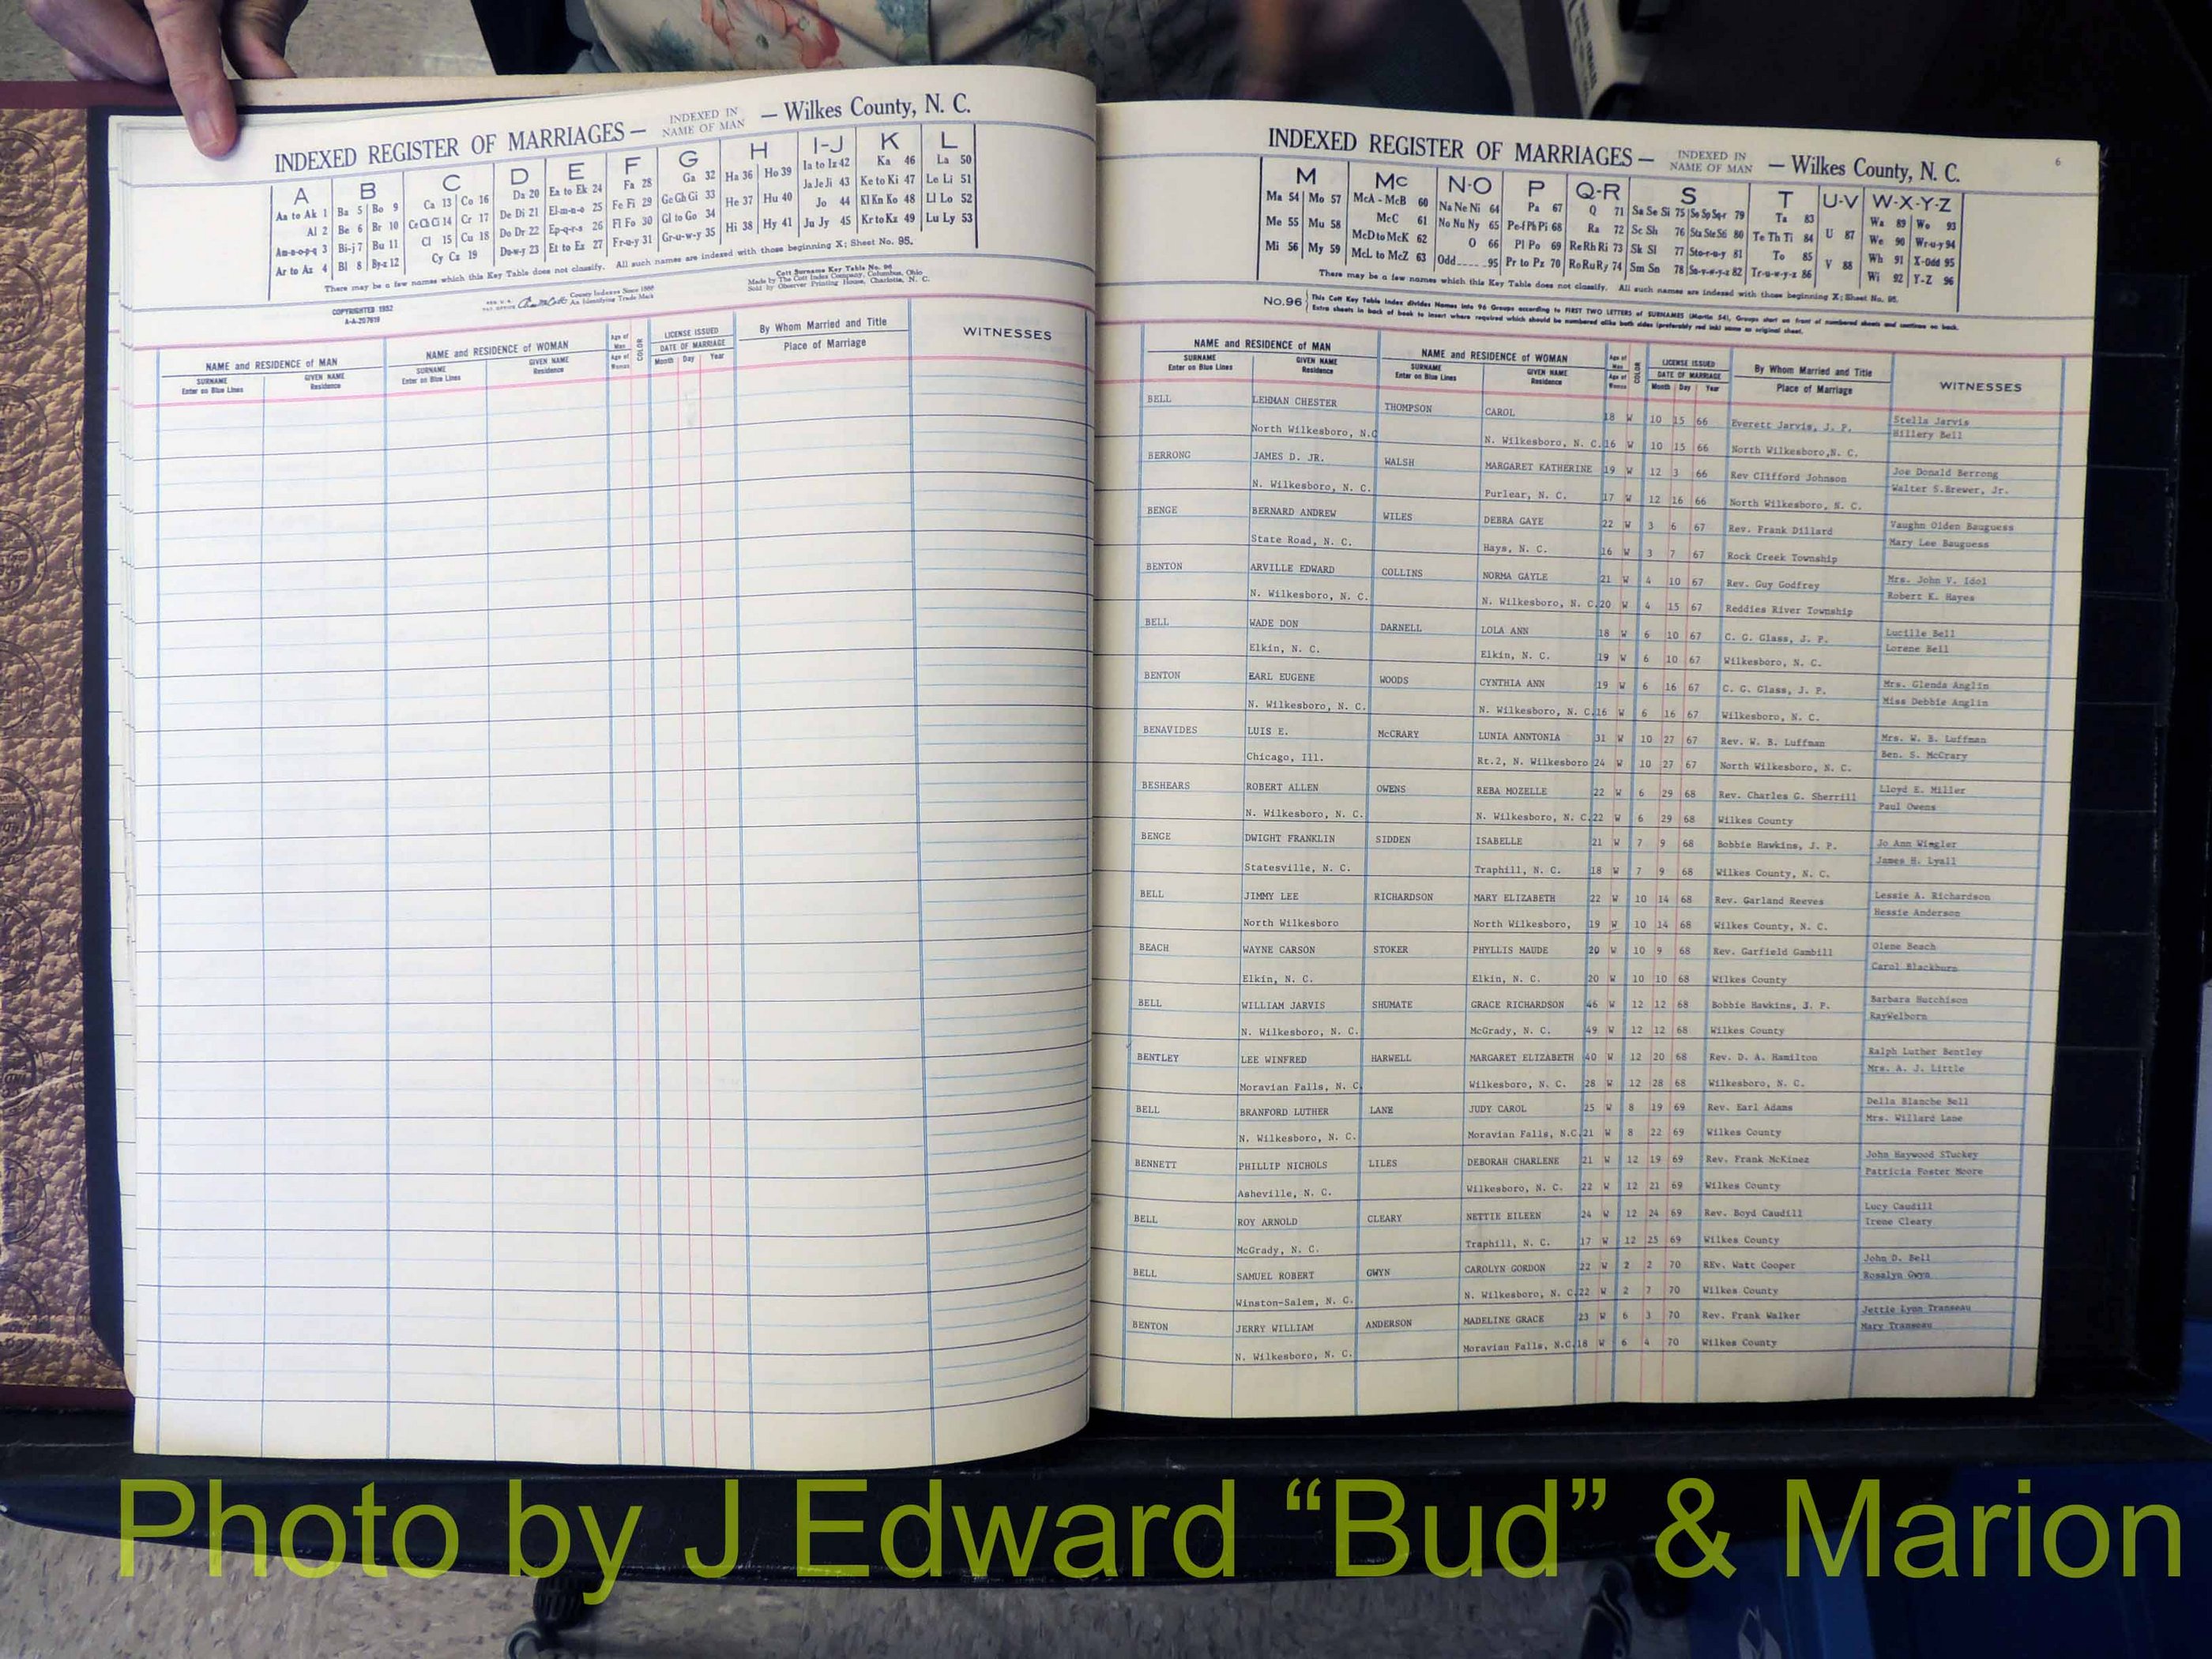 INDEXED REGISTER OF MARRIAGES — INDEXED IN NAME OF MAN — Wilkes County, N. C.
A B C D E F G H I-J K L
Aa to Ak 1 Ba 5 Bo 9 Ca 13 Co 16 Da 20 Ea to Ek 24 Fa 28 Ga 32 Ha 36 Ho 39 Ia to Iz 42 Ka 46 La 50
Al 2 Be 6 Br 10 Ce Ch Ci 14 Cr 17 De Di 21 El-m-n-o 25 Fe Fi 29 Ge Gh Gi 33 He 37 Hu 40 Ja Je Ji 43 Ke to Ki 47 Le Li 51
Am-n-o-p-q 3 Bi-j 7 Bu 11 Cl 15 Cu 18 Do Dr 22 Ep-q-r-s 26 Fl Fo 30 Gl to Go 34 Hi 38 Hy 41 Jo 44 Kl Kn Ko 48 Ll Lo 52
Ar to Az 4 Bl 8 By-z 12 Cy Cz 19 Du-w-y 23 Et to Ez 27 Fr-u-y 31 Gr-u-w-y 35 Ju Jy 45 Kr to Kz 49 Lu Ly 53
There may be a few names which this Key Table does not classify. All such names are indexed with those beginning X; Sheet No. 95.
COPYRIGHTED 1952
A-A-207619
County Indexes Since 1888
An Identifying Trade Mark
Cott Surname Key Table No. 96
Made by The Cott Index Company, Columbus, Ohio
Sold by Observer Printing House, Charlotte, N. C.
NAME and RESIDENCE of MAN
SURNAME
Enter on Blue Lines
GIVEN NAME
Residence
NAME and RESIDENCE of WOMAN
SURNAME
Enter on Blue Lines
GIVEN NAME
Residence
Age of Man
Age of Woman
COLOR
LICENSE ISSUED
DATE OF MARRIAGE
Month Day Year
By Whom Married and Title
Place of Marriage
WITNESSES
INDEXED REGISTER OF MARRIAGES — INDEXED IN NAME OF MAN — Wilkes County, N. C.
6
M Mc N-O P Q-R S T U-V W-X-Y-Z
Ma 54 Mo 57 McA - McB 60 Na Ne Ni 64 Pa 67 Q 71 Sa Se Si 75 So Sp Sq-r 79 Ta 83 U 87 Wa 89 Wo 93
Me 55 Mu 58 McC 61 No Nu Ny 65 Pe-f Ph Pi 68 Ra 72 Sc Sh 76 Sta Ste S6 80 Te Th Ti 84 V 88 We 90 Wr-u-y 94
Mi 56 My 59 McD to McK 62 O 66 Pl Po 69 Re Rh Ri 73 Sk Sl 77 Sto-r-u-y 81 To 85 Wh 91 X-Odd 95
McL to McZ 63 Odd 95 Pr to Pz 70 Ro Ru Ry 74 Sm Sn 78 Su-v-w-y-z 82 Tr-u-w-y-z 86 Wi 92 Y-Z 96
There may be a few names which this Key Table does not classify. All such names are indexed with those beginning X; Sheet No. 95.
No. 96 This Cott Key Table Index divides Names into 96 Groups according to FIRST TWO LETTERS of SURNAMES (Martin 54). Groups start on front of numbered sheets and continue on back.
Extra sheets in back of book to insert where required which should be numbered alike both sides (preferably red ink) same as original sheet.
NAME and RESIDENCE of MAN
SURNAME
Enter on Blue Lines
GIVEN NAME
Residence
NAME and RESIDENCE of WOMAN
SURNAME
Enter on Blue Lines
GIVEN NAME
Residence
Age of Man
Age of Woman
COLOR
LICENSE ISSUED
DATE OF MARRIAGE
Month Day Year
By Whom Married and Title
Place of Marriage
WITNESSES
BELL LEHMAN CHESTER THOMPSON CAROL 18 W 10 15 66 Everett Jarvis, J. P. Stella Jarvis
North Wilkesboro, N.C N. Wilkesboro, N. C. 16 W 10 15 66 North Wilkesboro,N. C. Hillery Bell
BERRONG JAMES D. JR. WALSH MARGARET KATHERINE 19 W 12 3 66 Rev Clifford Johnson Joe Donald Berrong
N. Wilkesboro, N. C. Purlear, N. C. 17 W 12 16 66 North Wilkesboro, N. C. Walter S.Brewer, Jr.
BENGE BERNARD ANDREW WILES DEBRA GAYE 22 W 3 6 67 Rev. Frank Dillard Vaughn Olden Bauguess
State Road, N. C. Hays, N. C. 16 W 3 7 67 Rock Creek Township Mary Lee Bauguess
BENTON ARVILLE EDWARD COLLINS NORMA GAYLE 21 W 4 10 67 Rev. Guy Godfrey Mrs. John V. Idol
N. Wilkesboro, N. C. N. Wilkesboro, N. C. 20 W 4 15 67 Reddies River Township Robert K. Hayes
BELL WADE DON DARNELL LOLA ANN 18 W 6 10 67 C. C. Glass, J. P. Lucille Bell
Elkin, N. C. Elkin, N. C. 19 W 6 10 67 Wilkesboro, N. C. Lorene Bell
BENTON EARL EUGENE WOODS CYNTHIA ANN 19 W 6 16 67 C. C. Glass, J. P. Mrs. Glenda Anglin
N. Wilkesboro, N. C. N. Wilkesboro, N. C. 16 W 6 16 67 Wilkesboro, N. C. Miss Debbie Anglin
BENAVIDES LUIS E. McCRARY LUNIA ANNTONIA 31 W 10 27 67 Rev. W. B. Luffman Mrs. W. B. Luffman
Chicago, Ill. Rt.2, N. Wilkesboro 24 W 10 27 67 North Wilkesboro, N. C. Ben. S. McCrary
BESHEARS ROBERT ALLEN OWENS REBA MOZELLE 22 W 6 29 68 Rev. Charles G. Sherrill Lloyd E. Miller
N. Wilkesboro, N. C. N. Wilkesboro, N. C. 22 W 6 29 68 Wilkes County Paul Owens
BENGE DWIGHT FRANKLIN SIDDEN ISABELLE 21 W 7 9 68 Bobbie Hawkins, J. P. Jo Ann Wingler
Statesville, N. C. Traphill, N. C. 18 W 7 9 68 Wilkes County, N. C. James H. Lyall
BELL JIMMY LEE RICHARDSON MARY ELIZABETH 22 W 10 14 68 Rev. Garland Reeves Lessie A. Richardson
North Wilkesboro North Wilkesboro, 19 W 10 14 68 Wilkes County, N. C. Hessie Anderson
BEACH WAYNE CARSON STOKER PHYLLIS MAUDE 20 W 10 9 68 Rev. Garfield Gambill Olene Beach
Elkin, N. C. Elkin, N. C. 20 W 10 10 68 Wilkes County Carol Blackburn
BELL WILLIAM JARVIS SHUMATE GRACE RICHARDSON 46 W 12 12 68 Bobbie Hawkins, J. P. Barbara Hutchison
N. Wilkesboro, N. C. McGrady, N. C. 49 W 12 12 68 Wilkes County RayWelborn
BENTLEY LEE WINFRED HARWELL MARGARET ELIZABETH 40 W 12 20 68 Rev. D. A. Hamilton Ralph Luther Bentley
Moravian Falls, N. C Wilkesboro, N. C. 28 W 12 28 68 Wilkesboro, N. C. Mrs. A. J. Little
BELL BRANFORD LUTHER LANE JUDY CAROL 25 W 8 19 69 Rev. Earl Adams Della Blanche Bell
N. Wilkesboro, N. C. Moravian Falls, N.C. 21 W 8 22 69 Wilkes County Mrs. Willard Lane
BENNETT PHILLIP NICHOLS LILES DEBORAH CHARLENE 21 W 12 19 69 Rev. Frank McKinez John Haywood STuckey
Asheville, N. C. Wilkesboro, N. C. 22 W 12 21 69 Wilkes County Patricia Foster Moore
BELL ROY ARNOLD CLEARY NETTIE EILEEN 24 W 12 24 69 Rev. Boyd Caudill Lucy Caudill
McGrady, N. C. Traphill, N. C. 17 W 12 25 69 Wilkes County Irene Cleary
BELL SAMUEL ROBERT GWYN CAROLYN GORDON 22 W 2 2 70 REv. Watt Cooper John D. Bell
Winston-Salem, N. C. N. Wilkesboro, N. C. 22 W 2 7 70 Wilkes County Rosalyn Gwyn
BENTON JERRY WILLIAM ANDERSON MADELINE GRACE 23 W 6 3 70 Rev. Frank Walker Jettie Lyon Transeau
N. Wilkesboro, N. C. Moravian Falls, N.C. 18 W 6 4 70 Wilkes County Mary Transeau
Photo by J Edward “Bud” & Marion